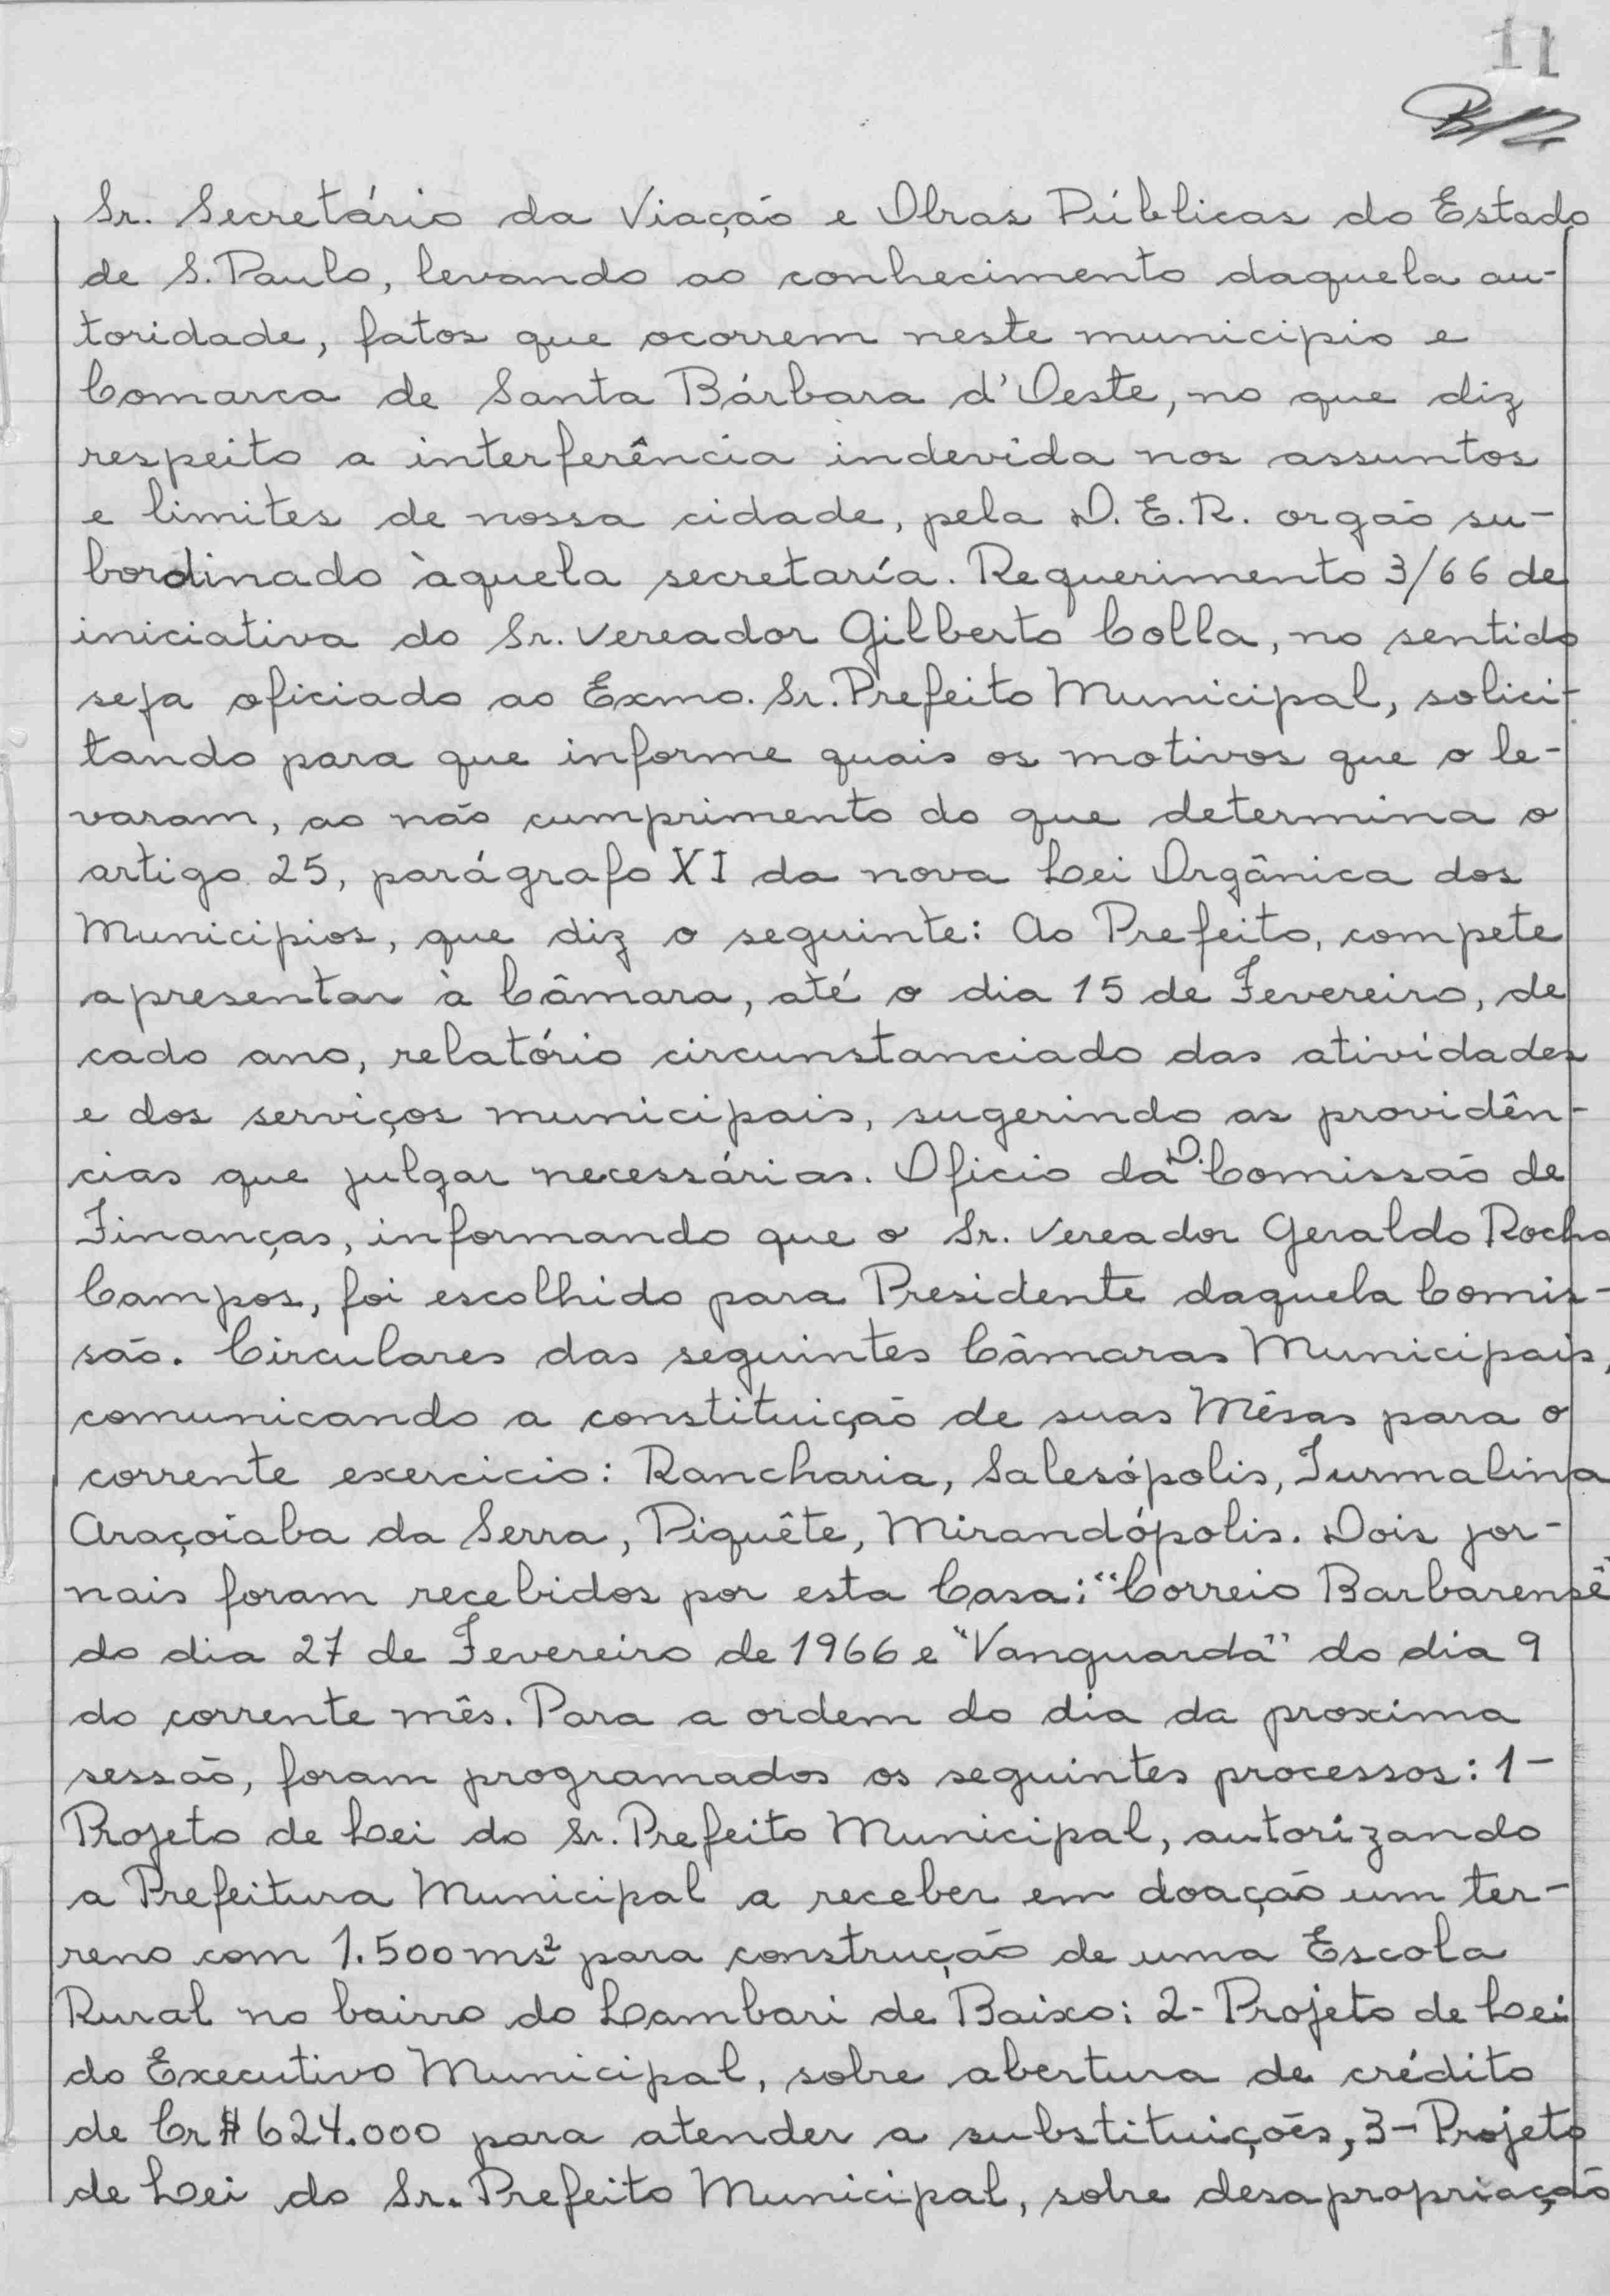 11
Sr. Secretário da Viação e Obras Públicas do Estado
de S. Paulo, levando ao conhecimento daquela au-
toridade, fatos que ocorrem neste municipio e
Comarca de Santa Bárbara d'Oeste, no que diz
respeito a interferência indevida nos assuntos
e limites de nossa cidade, pela D. E. R. orgão su-
bordinado àquela secretaría. Requerimento 3/66 de
iniciativa do Sr. Vereador Gilberto Colla, no sentido
seja oficiado ao Exmo. Sr. Prefeito Municipal, solici-
tando para que informe quais os motivos que o le-
varam, ao não cumprimento do que determina o
artigo 25, parágrafo XI da nova Lei Orgânica dos
Municipios, que diz o seguinte: Ao Prefeito, compete
apresentar à Câmara, até o dia 15 de Fevereiro, de
cado ano, relatório circunstanciado das atividades
e dos serviços municipais, sugerindo as providên-
cias que julgar necessárias. Oficio da D. Comissão de
Finanças, informando que o Sr. Vereador Geraldo Rocha
Campos, foi escolhido para Presidente daquela Comis-
são. Circulares das seguintes Câmaras Municipais,
comunicando a constituição de suas Mêsas para o
corrente exercicio: Rancharia, Salesópolis, Turmalina
Araçoiaba da Serra, Piquête, Mirandópolis. Dois jor-
nais foram recebidos por esta Casa: "Correio Barbarense"
do dia 27 de Fevereiro de 1966 e "Vanguarda" do dia 9
do corrente mês. Para a ordem do dia da proxima
sessão, foram programados os seguintes processos: 1-
Projeto de Lei do Sr. Prefeito Municipal, autorizando
a Prefeitura Municipal a receber em doação um ter-
reno com 1.500 ms² para construção de uma Escola
Rural no bairro do Lambari de Baixo: 2- Projeto de Lei
do Executivo Municipal, sobre abertura de crédito
de Cr$ 624.000 para atender a substituições, 3- Projeto
de Lei do Sr. Prefeito Municipal, sobre desapropriação